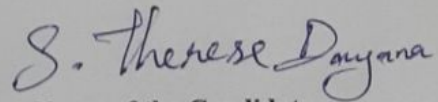 S. Therese Dayana